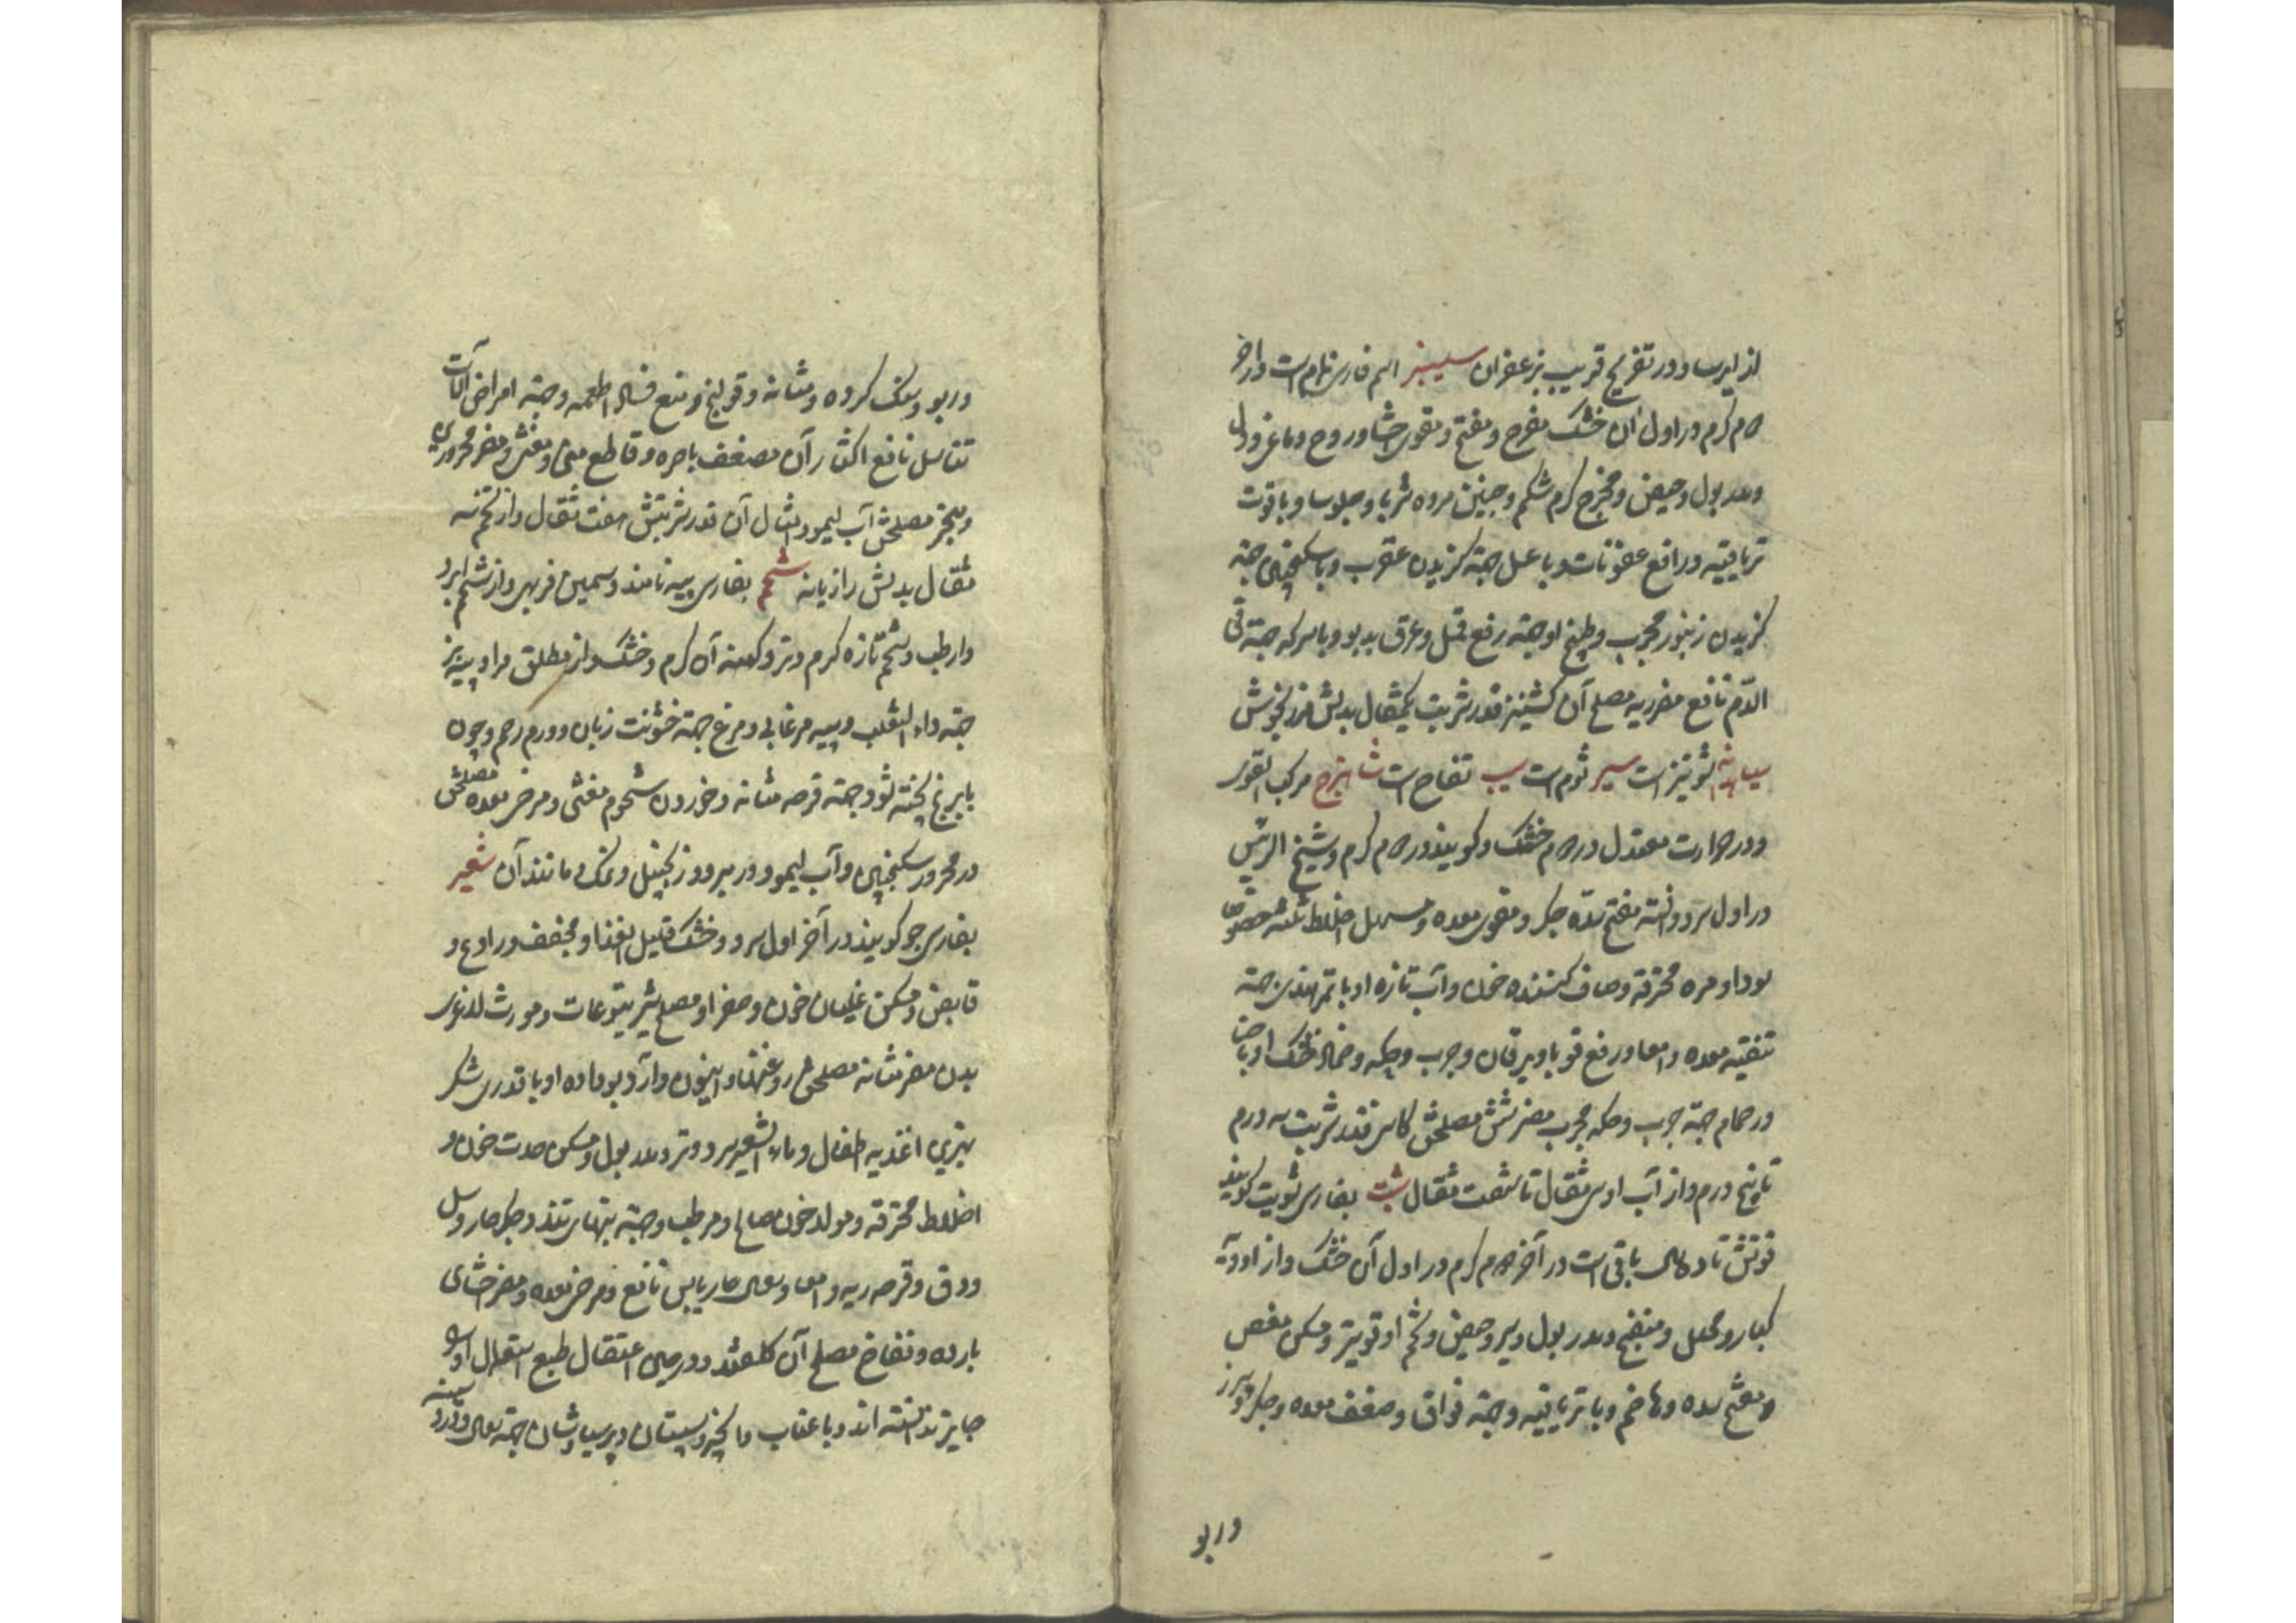 از ایرسا و در تفریح قریب بزعفران سیسنبر اسم فارسی نمام است و در آخر
سیم گرم و در اول آن خشک مفرح و مفتح و مقوی احشا و روح و دماغ و دل
و مدر بول و حیض و مخرج کرم شکم و جنین مرده شربا و جلوسا و با قوت
تریاقیه و رافع عفونات و با عسل جهة گزیدن عقرب و با سکنجبین جهة
گزیدن زنبور مجرب و طبیخ او جهة رفع قمل و عرق بدبو و با سرکه جهة قی
الدّم نافع مضر ریه مصلح آن کشنیز قدر شربت یکمثقال بدلش مرزنجوش
سیاه‌دانه شونیز است سیر ثوم است سیب تفاح است شاهترج مرکب القوی
و در حرارت معتدل و در سیم خشک و گویند در سیم گرم و شیخ الرئیس
در اول سرد دانسته مفتح سدّه جگر و مقوی معده و مسهل اخلاط ثلثه خصوصا
سودا و مره محترقه و صاف کننده خون و آب تازه او با تمر هندی جهة
تنقیه معده و امعا و رفع قوبا و یرقان و جرب و حکه و ضماد خشک او با حنا
در حمام جهة جرب و حکه مجرب مضر شش مصلحش کاسنی قدر شربت سه درم
تا پنج درم و از آب او سی مثقال تا شصت مثقال شبت بفارسی شویت گویند
قوتش تا دو سال باقی است در آخر سیم گرم و در اول آن خشک و از ادویه
کبار و محلل و منضج و مدر بول و شیر و حیض و تخم او قویتر و مسکن مغص
و مفتح سده و هاضم و با تریاقیه و جهة فواق و ضعف معده و جگر و سپرز
و ربو
و ربو و سنک گرده و مثانه و قولنج و منع فساد اطعمه و جهة امراض آلات
تناسل نافع اکثار آن مضعف باصره و قاطع منی و مغثی و مضر محرورین
و مبخر مصلحش آب لیمو و امثال آن قدر شربتش هفت مثقال و از تخم سه
مثقال بدلش رازیانه شحم بفارسی پیه نامند و سمین فربهی و از شحم ابرد
و ارطب و شحم تازه گرم و تر و کهنه آن گرم و خشک و از مطلق مراد پیه بز
جهة داء الثعلب و پیه مرغابی و مرغ جهة خشونت زبان و ورم رحم و چون
با برنج پخته شود جهة قرحه مثانه و خوردن شحوم مغثی و مرخی معده مصلحش
در محرور سکنجبین و آب لیمو و در مبرود زنجبیل و نمک و مانند آن شعیر
بفارسی جو گویند در آخر اول سرد و خشک قلیل الغذا و مجفف و رادع و
قابض و مسکن غلیان خون و صفرا و مصلح شیر یتوعات و مورث لاغری
بدن مضر مثانه مصلحش روغنها و انیسون و آرد بو داده او با قدری شکر
بهترین اغذیه اطفال و ماء الشعیر سرد و تر و مدر بول و مسکن حدت خون و
اخلاط محترقه و مولد خون صالح و مرطب و جهة تبهای تند و جگر حار و سل
و دق و قرحه ریه و امعا و سعال حار یابس نافع و مرخی معده و مضر احشای
بارده و نفاخ مصلح آن گلقند و در حین اعتقال طبع استعمال او
جایز ندانسته اند و با عناب و انجیر و سپستان و پرسیاوشان جهة سعال و درد سینه